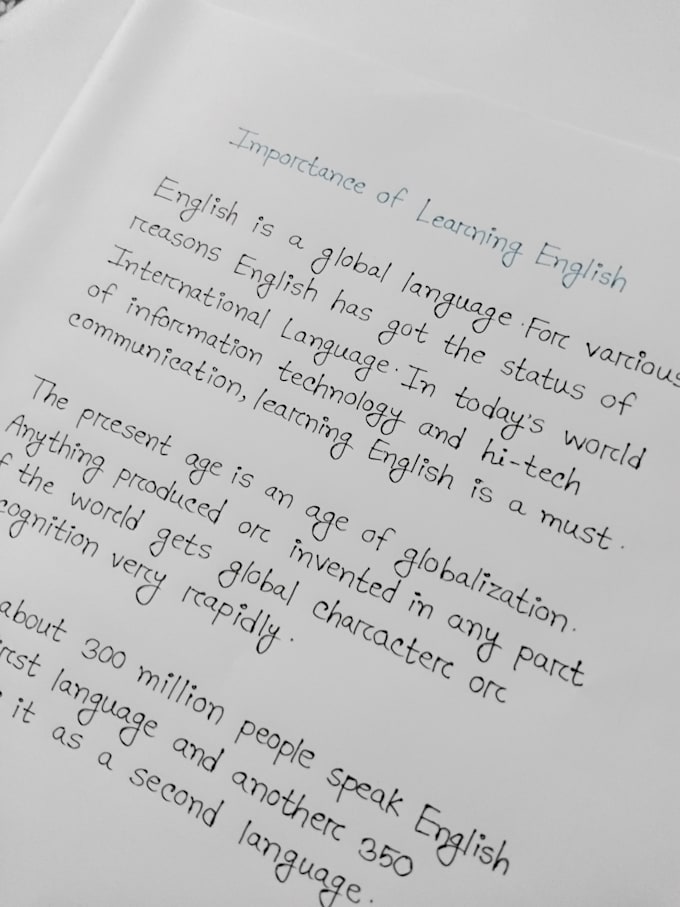 Importance of Learning English
English is a global language. For various
reasons English has got the status of
International Language. In today's world
of information technology and hi-tech
communication, learning English is a must.
The present age is an age of globalization.
Anything produced or invented in any part
f the world gets global character or
cognition very rapidly.
about 300 million people speak English
irst language and another 350
it as a second language.